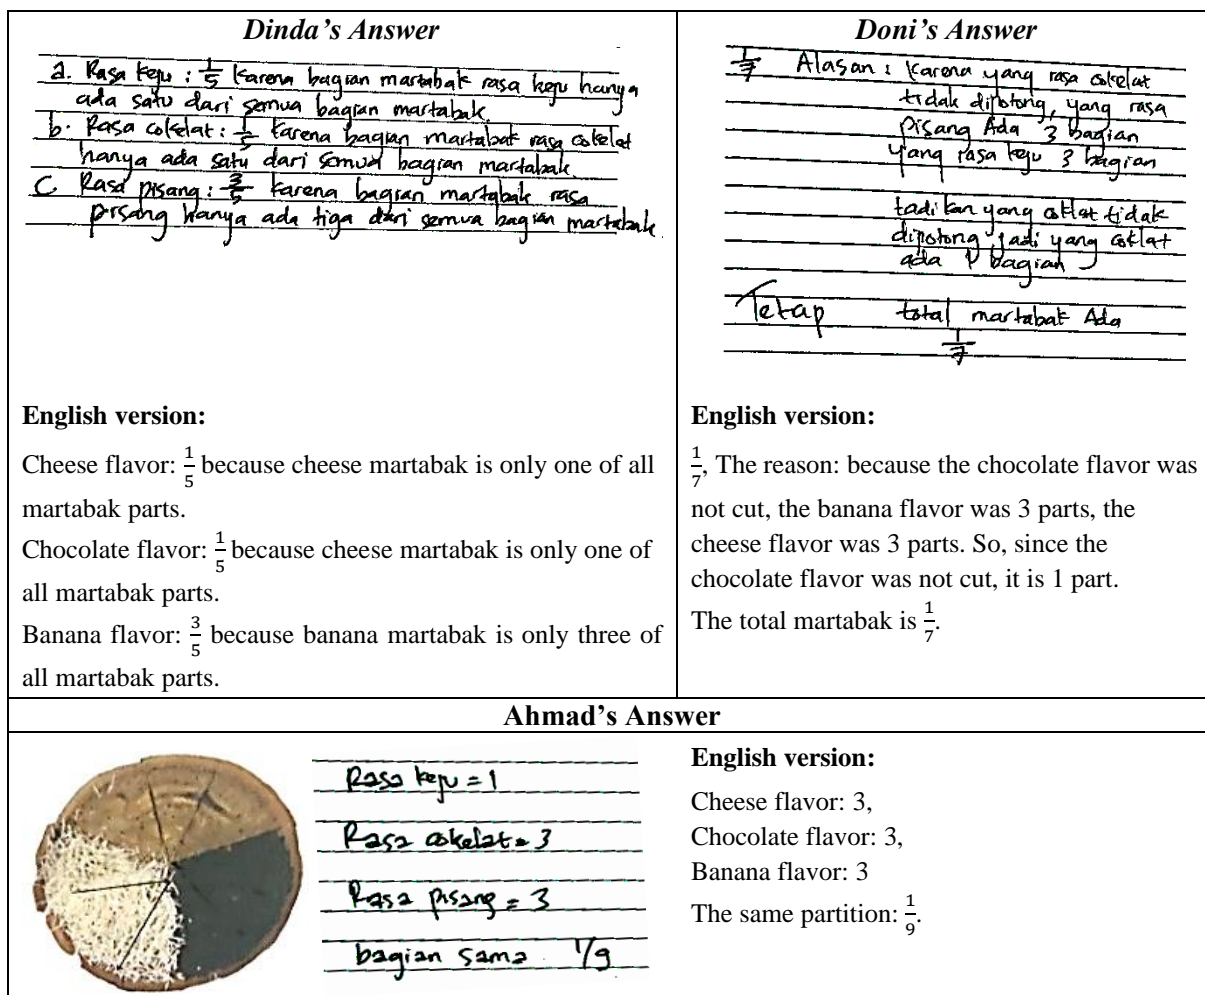 Dinda's Answer
a. Rasa keju : 1/5 karena bagian martabak rasa keju hanya
ada satu dari semua bagian martabak.
b. Rasa cokelat : 1/5 karena bagian martabak rasa cokelat
hanya ada satu dari semua bagian martabak.
C Rasa pisang : 3/5 karena bagian martabak rasa
pisang hanya ada tiga dari semua bagian martabak
English version:
Cheese flavor: 1/5 because cheese martabak is only one of all
martabak parts.
Chocolate flavor: 1/5 because cheese martabak is only one of
all martabak parts.
Banana flavor: 3/5 because banana martabak is only three of
all martabak parts.
Doni's Answer
1/7 Alasan : Karena yang rasa cokelat
tidak dipotong, yang rasa
pisang Ada 3 bagian
yang rasa keju 3 bagian
tadi kan yang coklat tidak
dipotong jadi yang coklat
ada 1 bagian
Tetap total martabak Ada
1/7
English version:
1/7, The reason: because the chocolate flavor was
not cut, the banana flavor was 3 parts, the
cheese flavor was 3 parts. So, since the
chocolate flavor was not cut, it is 1 part.
The total martabak is 1/7.
Ahmad's Answer
Rasa keju = 1
Rasa cokelat = 3
Rasa pisang = 3
bagian sama 1/9
English version:
Cheese flavor: 3,
Chocolate flavor: 3,
Banana flavor: 3
The same partition: 1/9.